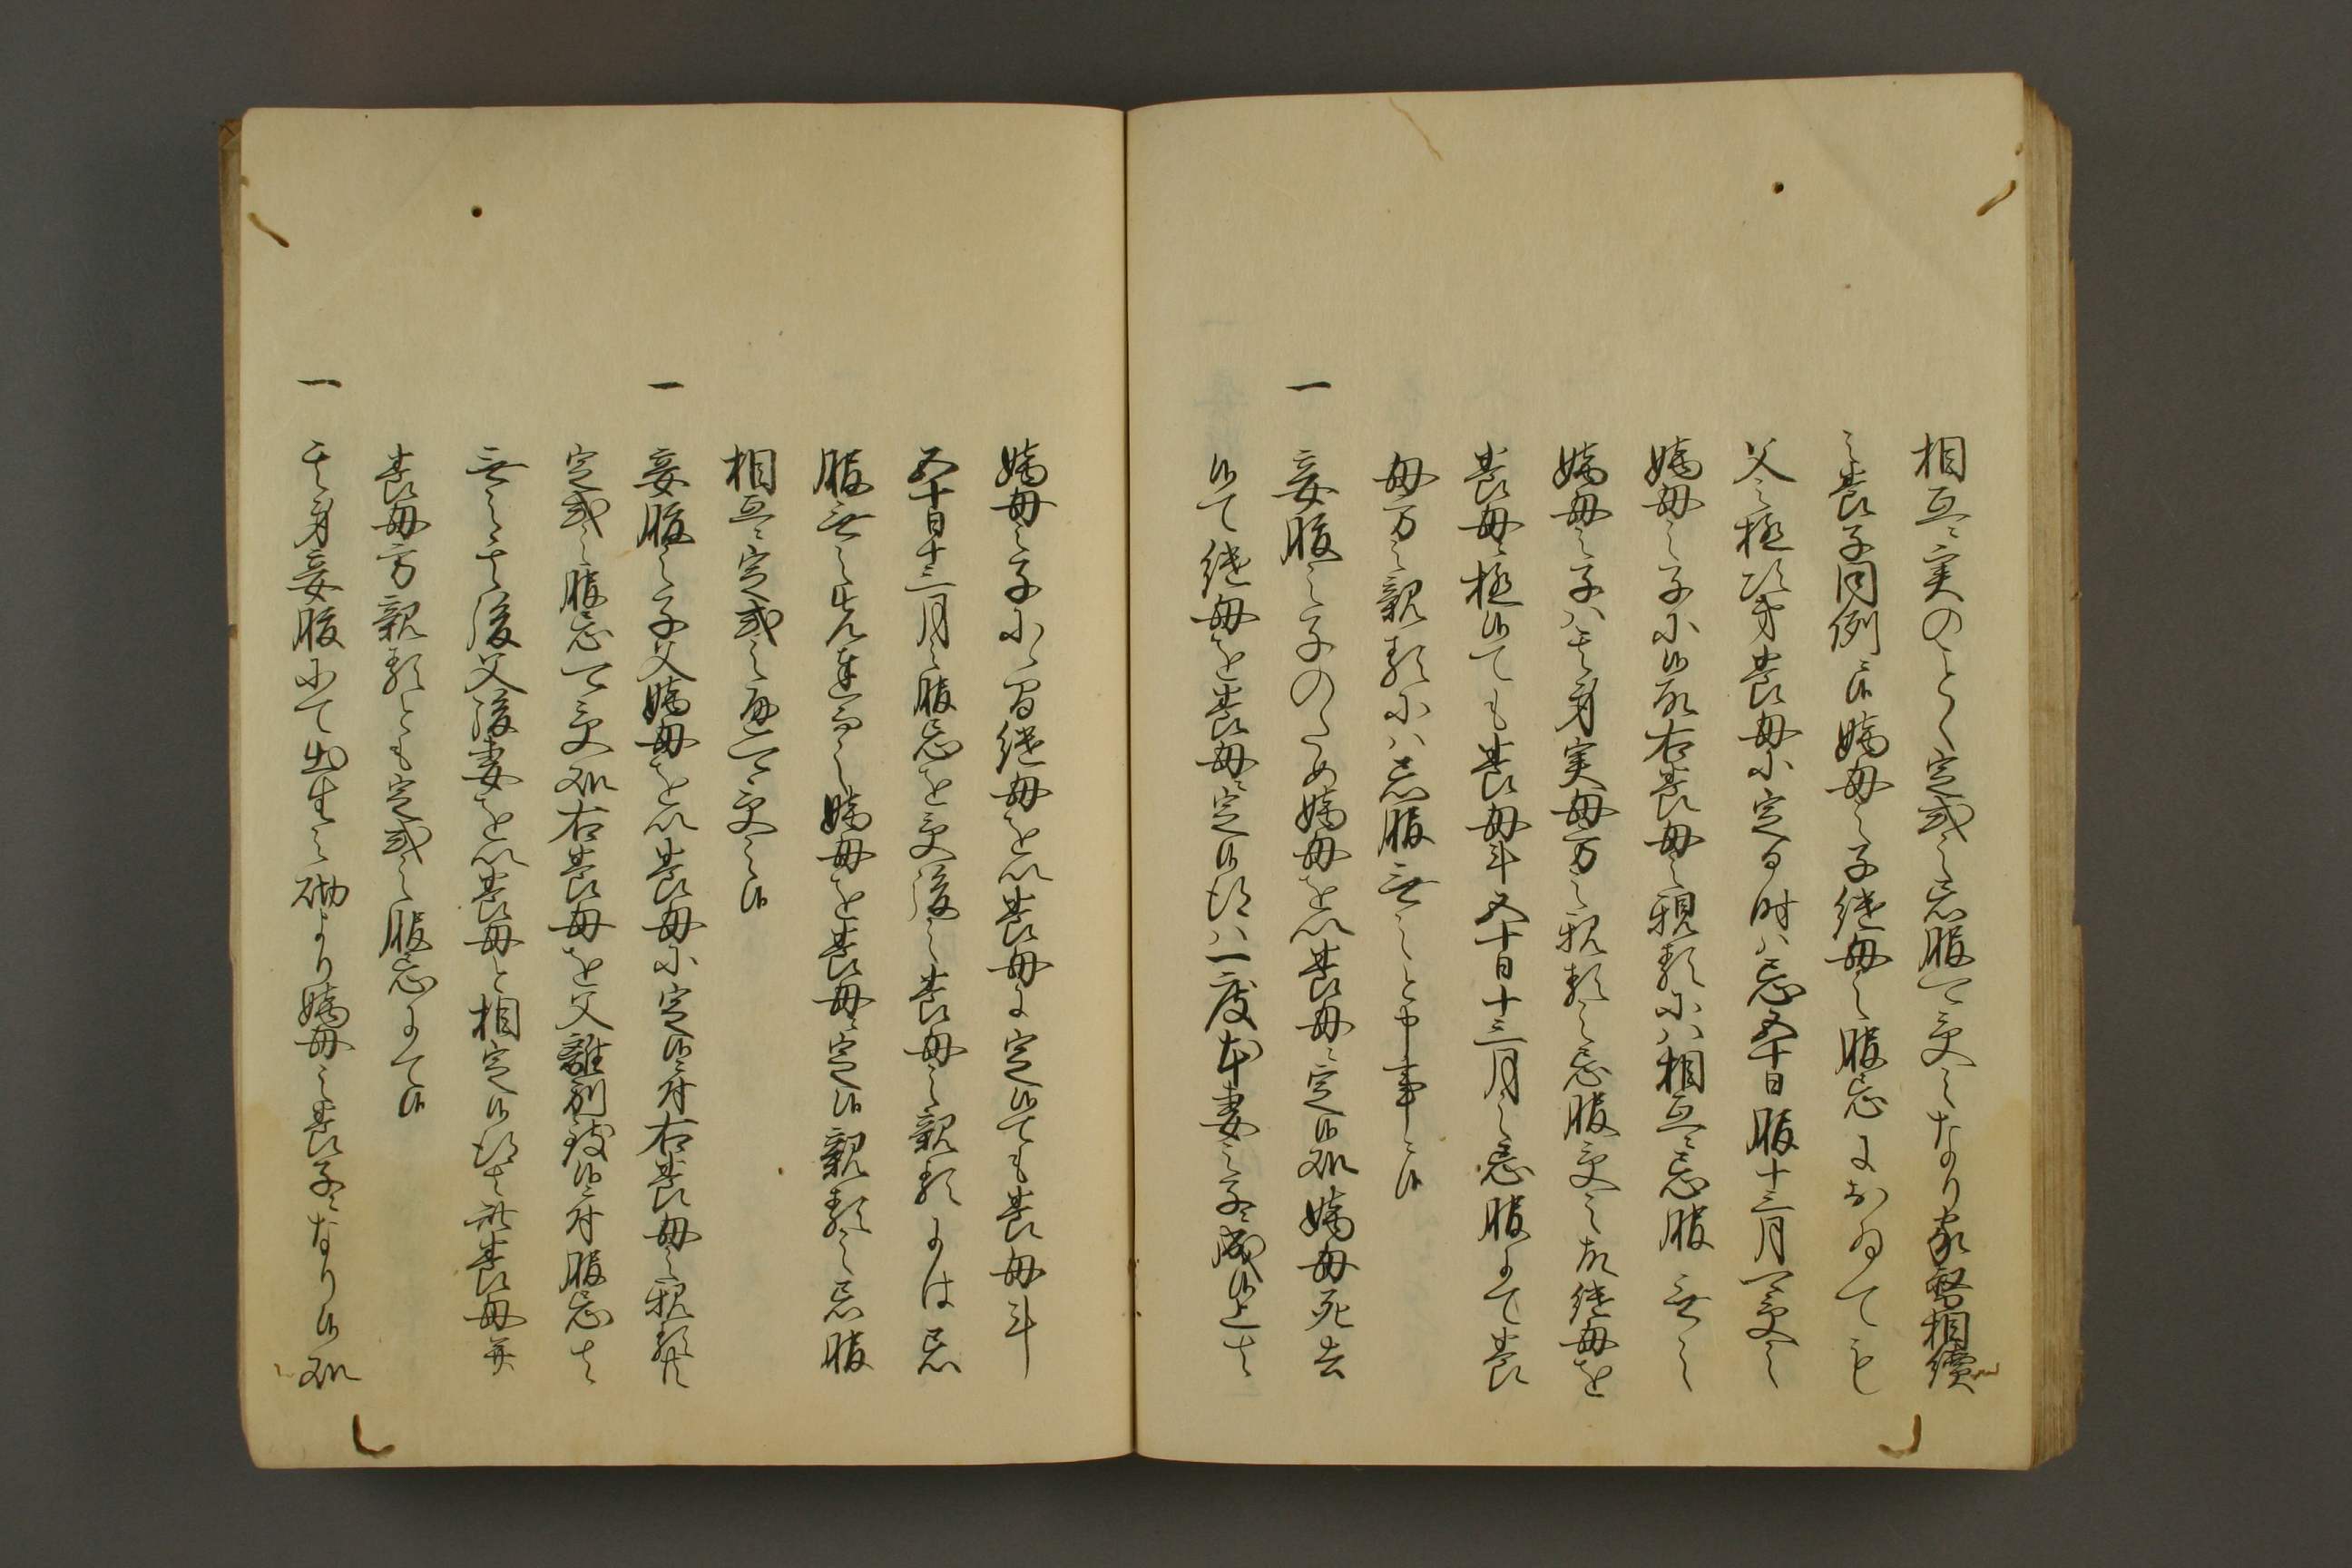 相互ニ実のことく定式之忌服可受之なり家督相續
之養子同例ニ候嫡母之子継母之服忌におゐても
父之極次第養母ニ定る時ハ忌五十日服十三月可受之
嫡母之子ニ候故右養母之親類ニハ相互ニ忌服無之
嫡母之子ハ其身実母方之親類之忌服受之故継母を
養母ニ極候ても養母斗五十日十三月之忌服にて養
母方之親類ニハ忌服無之と申事ニ候
一 妾腹之子のため嫡母を以養母ニ定候処嫡母死去
候て継母を養母ニ定候得ハ一度本妻之子ニ成候上は
嫡母之子ニ付継母を以養母に定候ても養母斗
五十日十三月之服忌を受後之養母之親類には忌
服無之先達而之嫡母を養母ニ定候親類之忌服
相互ニ定式之通可受之候
一 妾腹之子父嫡母を以養母ニ定候付右養母之親類共
定式之服忌可受処右養母を父離別致候付服忌者
無之其後父後妻を以養母と相定候得者此養母并
養母方親類とも定式之服忌にて候
一 其身妾腹にて出生之砌より嫡母之養子ニなり候処